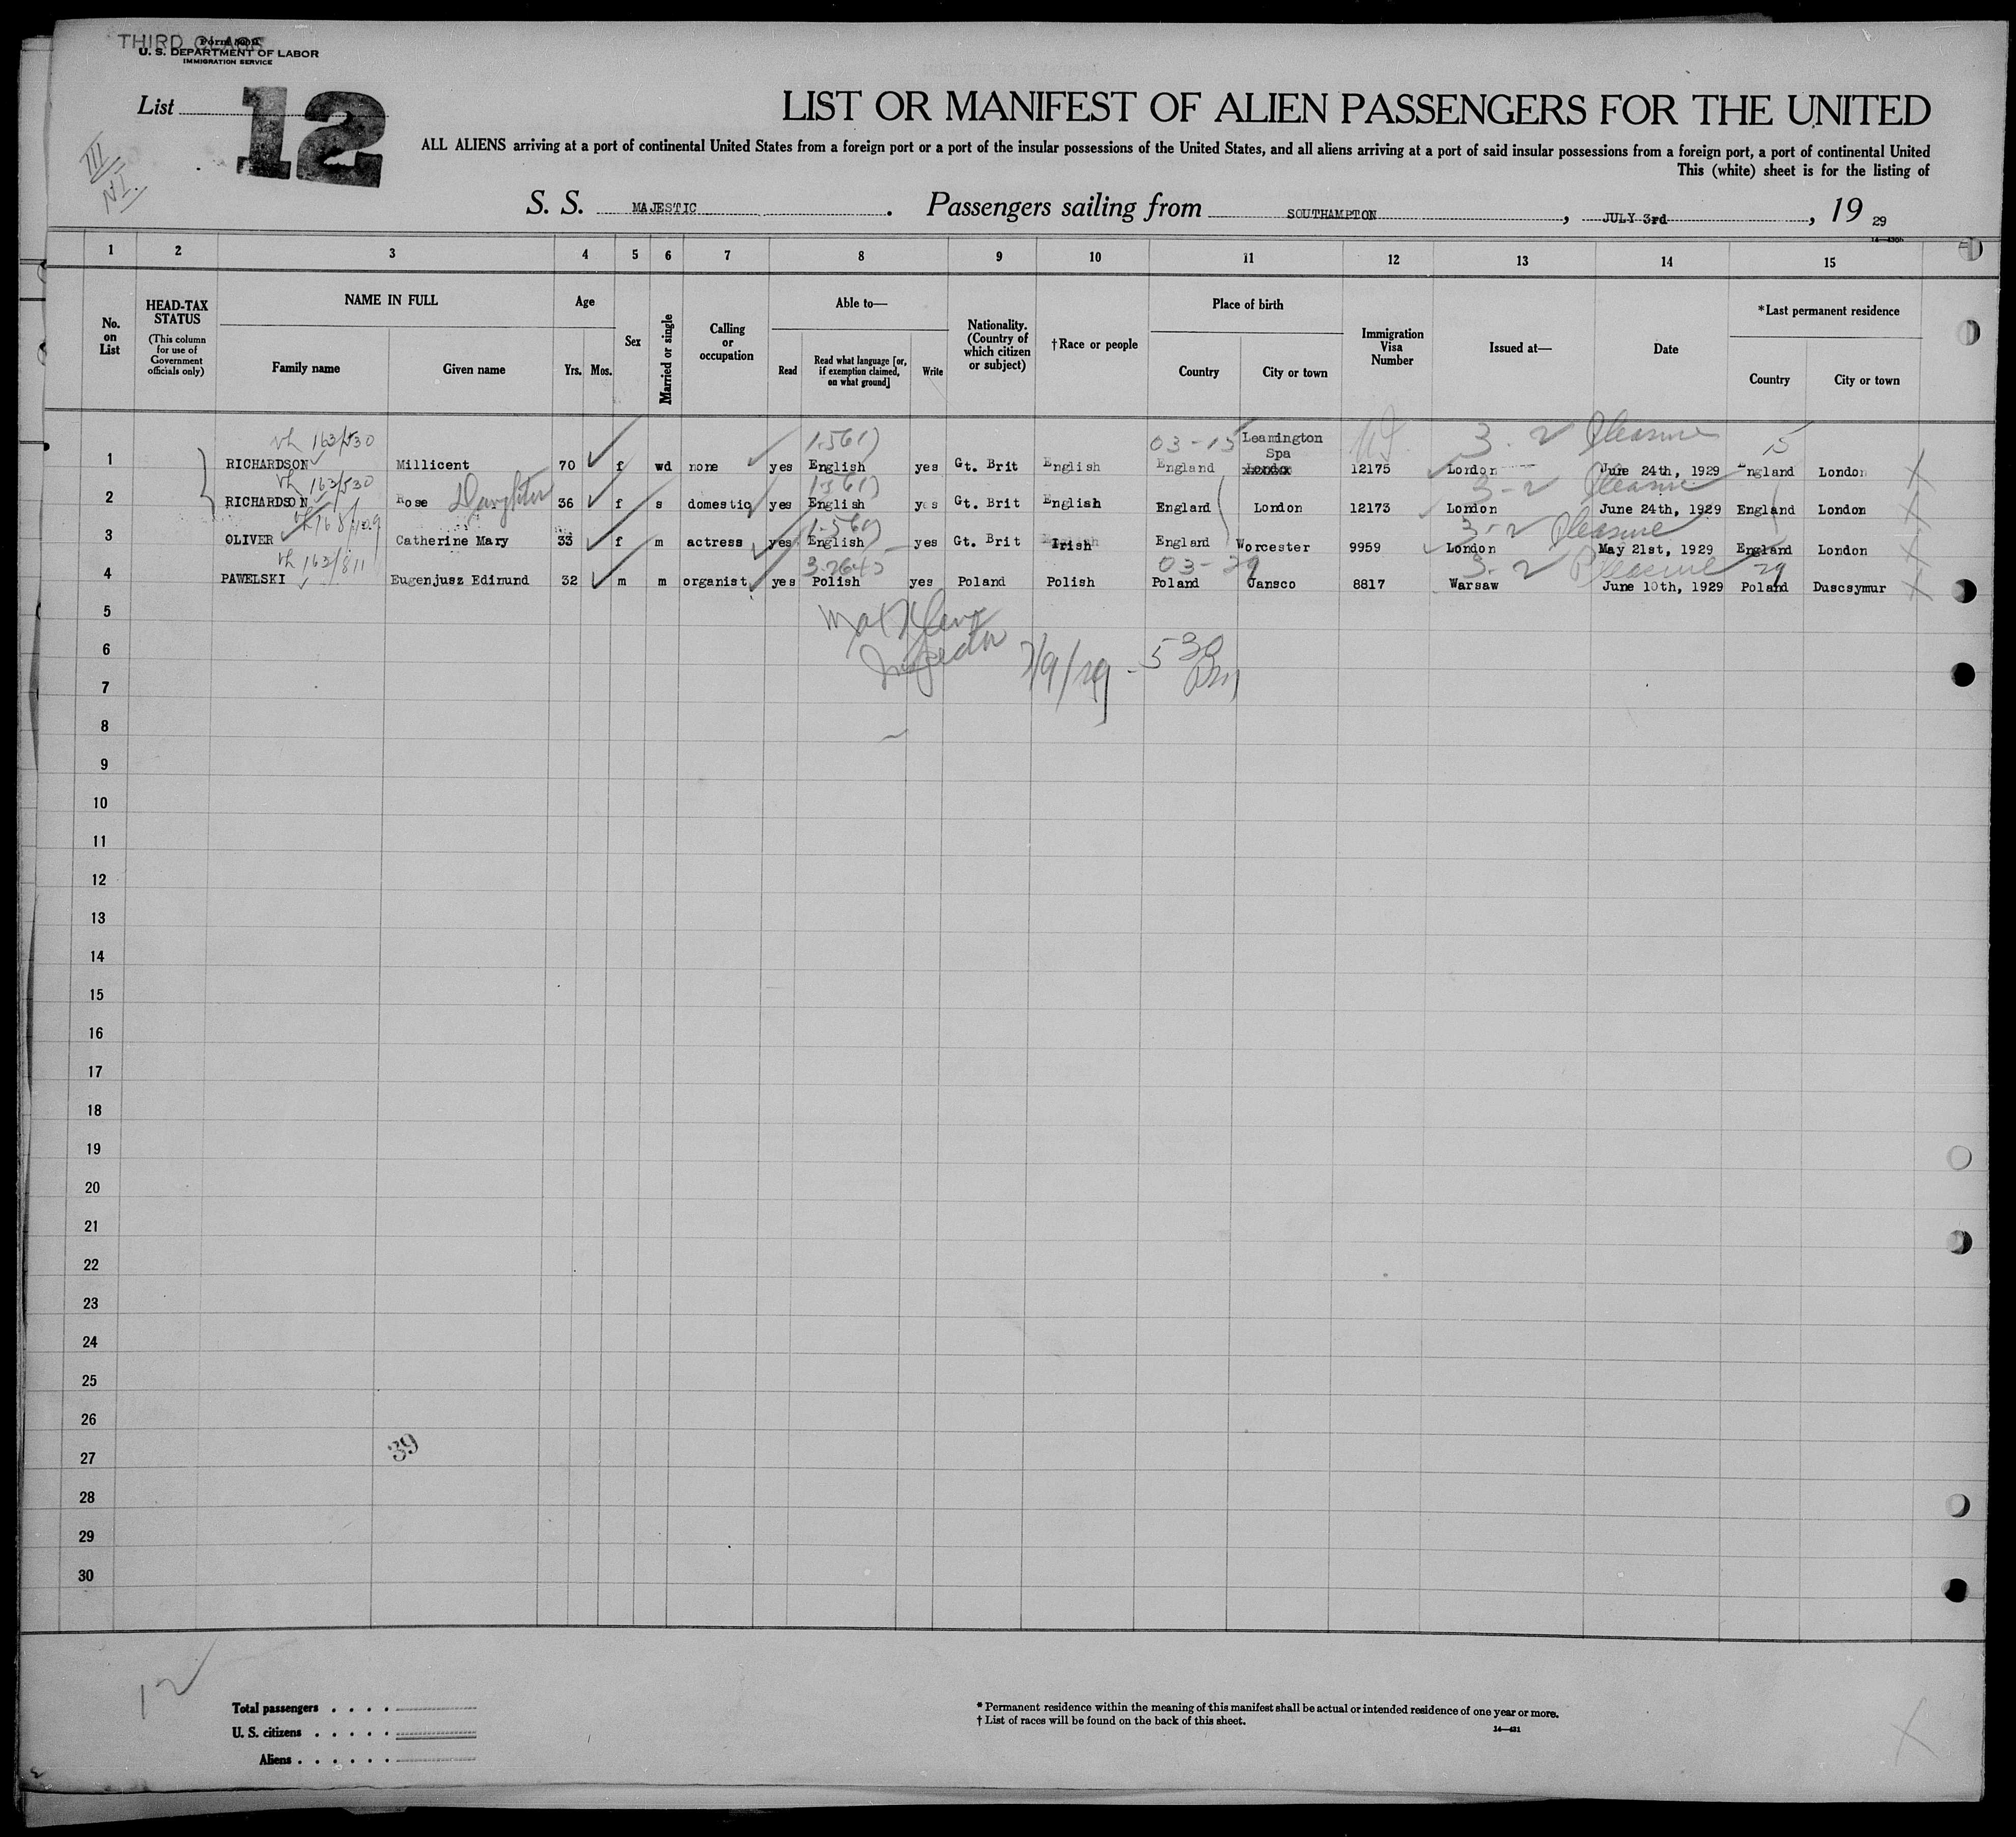 THIRD CLASS
U. S. DEPARTMENT OF LABOR
IMMIGRATION SERVICE
List 12
III
NI.
LIST OR MANIFEST OF ALIEN PASSENGERS FOR THE UNITED
ALL ALIENS arriving at a port of continental United States from a foreign port or a port of the insular possessions of the United States, and all aliens arriving at a port of said insular possessions from a foreign port, a port of continental United
This (white) sheet is for the listing of
S. S. MAJESTIC. Passengers sailing from SOUTHAMPTON, JULY 3rd, 19 29
1 2 3 4 5 6 7 8 9 10 11 12 13 14 15
No. on List
HEAD-TAX STATUS
(This column for use of Government officials only)
NAME IN FULL
Family name Given name
Age
Yrs. Mos.
Sex
Married or single
Calling or occupation
Able to—
Read Read what language [or, if exemption claimed, on what ground] Write
Nationality. (Country of which citizen or subject)
†Race or people
Place of birth
Country City or town
Immigration Visa Number
Issued at—
Date
*Last permanent residence
Country City or town
163/530 03-15 Leamington Spa 3-2 Pleasure 15
1 RICHARDSON Millicent 70 f wd none yes English yes Gt. Brit English England 12175 London June 24th, 1929 England London
163/530 3-2 Pleasure
2 RICHARDSON Rose Daughter 36 f s domestic yes English yes Gt. Brit English England London 12173 London June 24th, 1929 England London
3-2 Pleasure
3 OLIVER Catherine Mary 33 f m actress yes English yes Gt. Brit Irish England Worcester 9959 London May 21st, 1929 England London
163/811 03-29 3-2 Pleasure 29
4 PAWELSKI Eugenjusz Edmund 32 m m organist yes Polish yes Poland Polish Poland Jansco 8817 Warsaw June 10th, 1929 Poland Duscsymur
5
Inspector
6 7/9/29 - 5 30 PM
7
8
9
10
11
12
13
14
15
16
17
18
19
20
21
22
23
24
25
26
39
27
28
29
30
12
Total passengers . . . .
U. S. citizens . . . . .
Aliens . . . . . .
* Permanent residence within the meaning of this manifest shall be actual or intended residence of one year or more.
† List of races will be found on the back of this sheet.
14—421